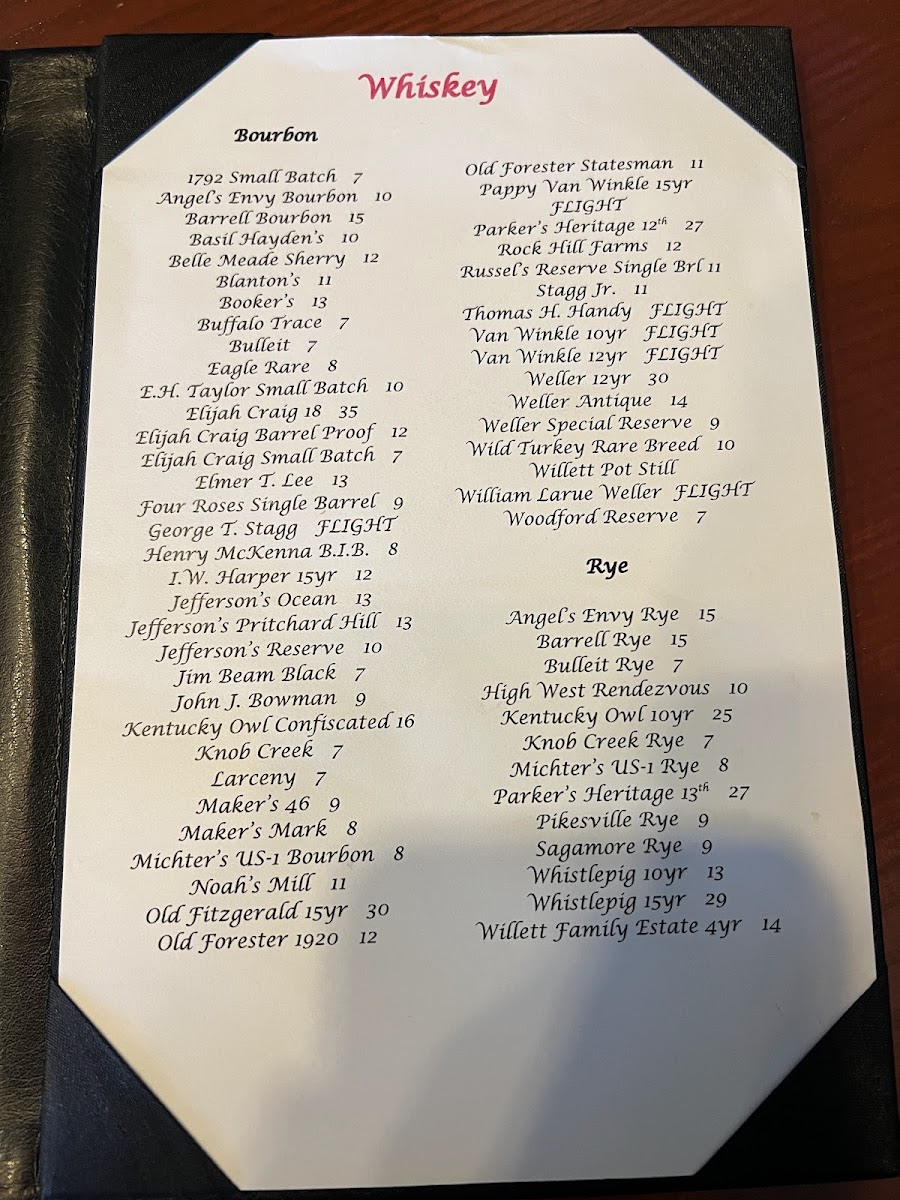 Whiskey
Bourbon
1792 Small Batch 7
Angel's Envy Bourbon 10
Barrell Bourbon 15
Basil Hayden's 10
Belle Meade Sherry 12
Blanton's 11
Booker's 13
Buffalo Trace 7
Bulleit 7
Eagle Rare 8
E.H. Taylor Small Batch 10
Elijah Craig 18 35
Elijah Craig Barrel Proof 12
Elijah Craig Small Batch 7
Elmer T. Lee 13
Four Roses Single Barrel 9
George T. Stagg FLIGHT
Henry McKenna B.I.B. 8
I.W. Harper 15yr 12
Jefferson's Ocean 13
Jefferson's Pritchard Hill 13
Jefferson's Reserve 10
Jim Beam Black 7
John J. Bowman 9
Kentucky Owl Confiscated 16
Knob Creek 7
Larceny 7
Maker's 46 9
Maker's Mark 8
Michter's US-1 Bourbon 8
Noah's Mill 11
Old Fitzgerald 15yr 30
Old Forester 1920 12
Old Forester Statesman 11
Pappy Van Winkle 15yr
FLIGHT
Parker's Heritage 12th 27
Rock Hill Farms 12
Russel's Reserve Single Brl 11
Stagg Jr. 11
Thomas H. Handy FLIGHT
Van Winkle 10yr FLIGHT
Van Winkle 12yr FLIGHT
Weller 12yr 30
Weller Antique 14
Weller Special Reserve 9
Wild Turkey Rare Breed 10
Willett Pot Still
William Larue Weller FLIGHT
Woodford Reserve 7
Rye
Angel's Envy Rye 15
Barrell Rye 15
Bulleit Rye 7
High West Rendezvous 10
Kentucky Owl 10yr 25
Knob Creek Rye 7
Michter's US-1 Rye 8
Parker's Heritage 13th 27
Pikesville Rye 9
Sagamore Rye 9
Whistlepig 10yr 13
Whistlepig 15yr 29
Willett Family Estate 4yr 14